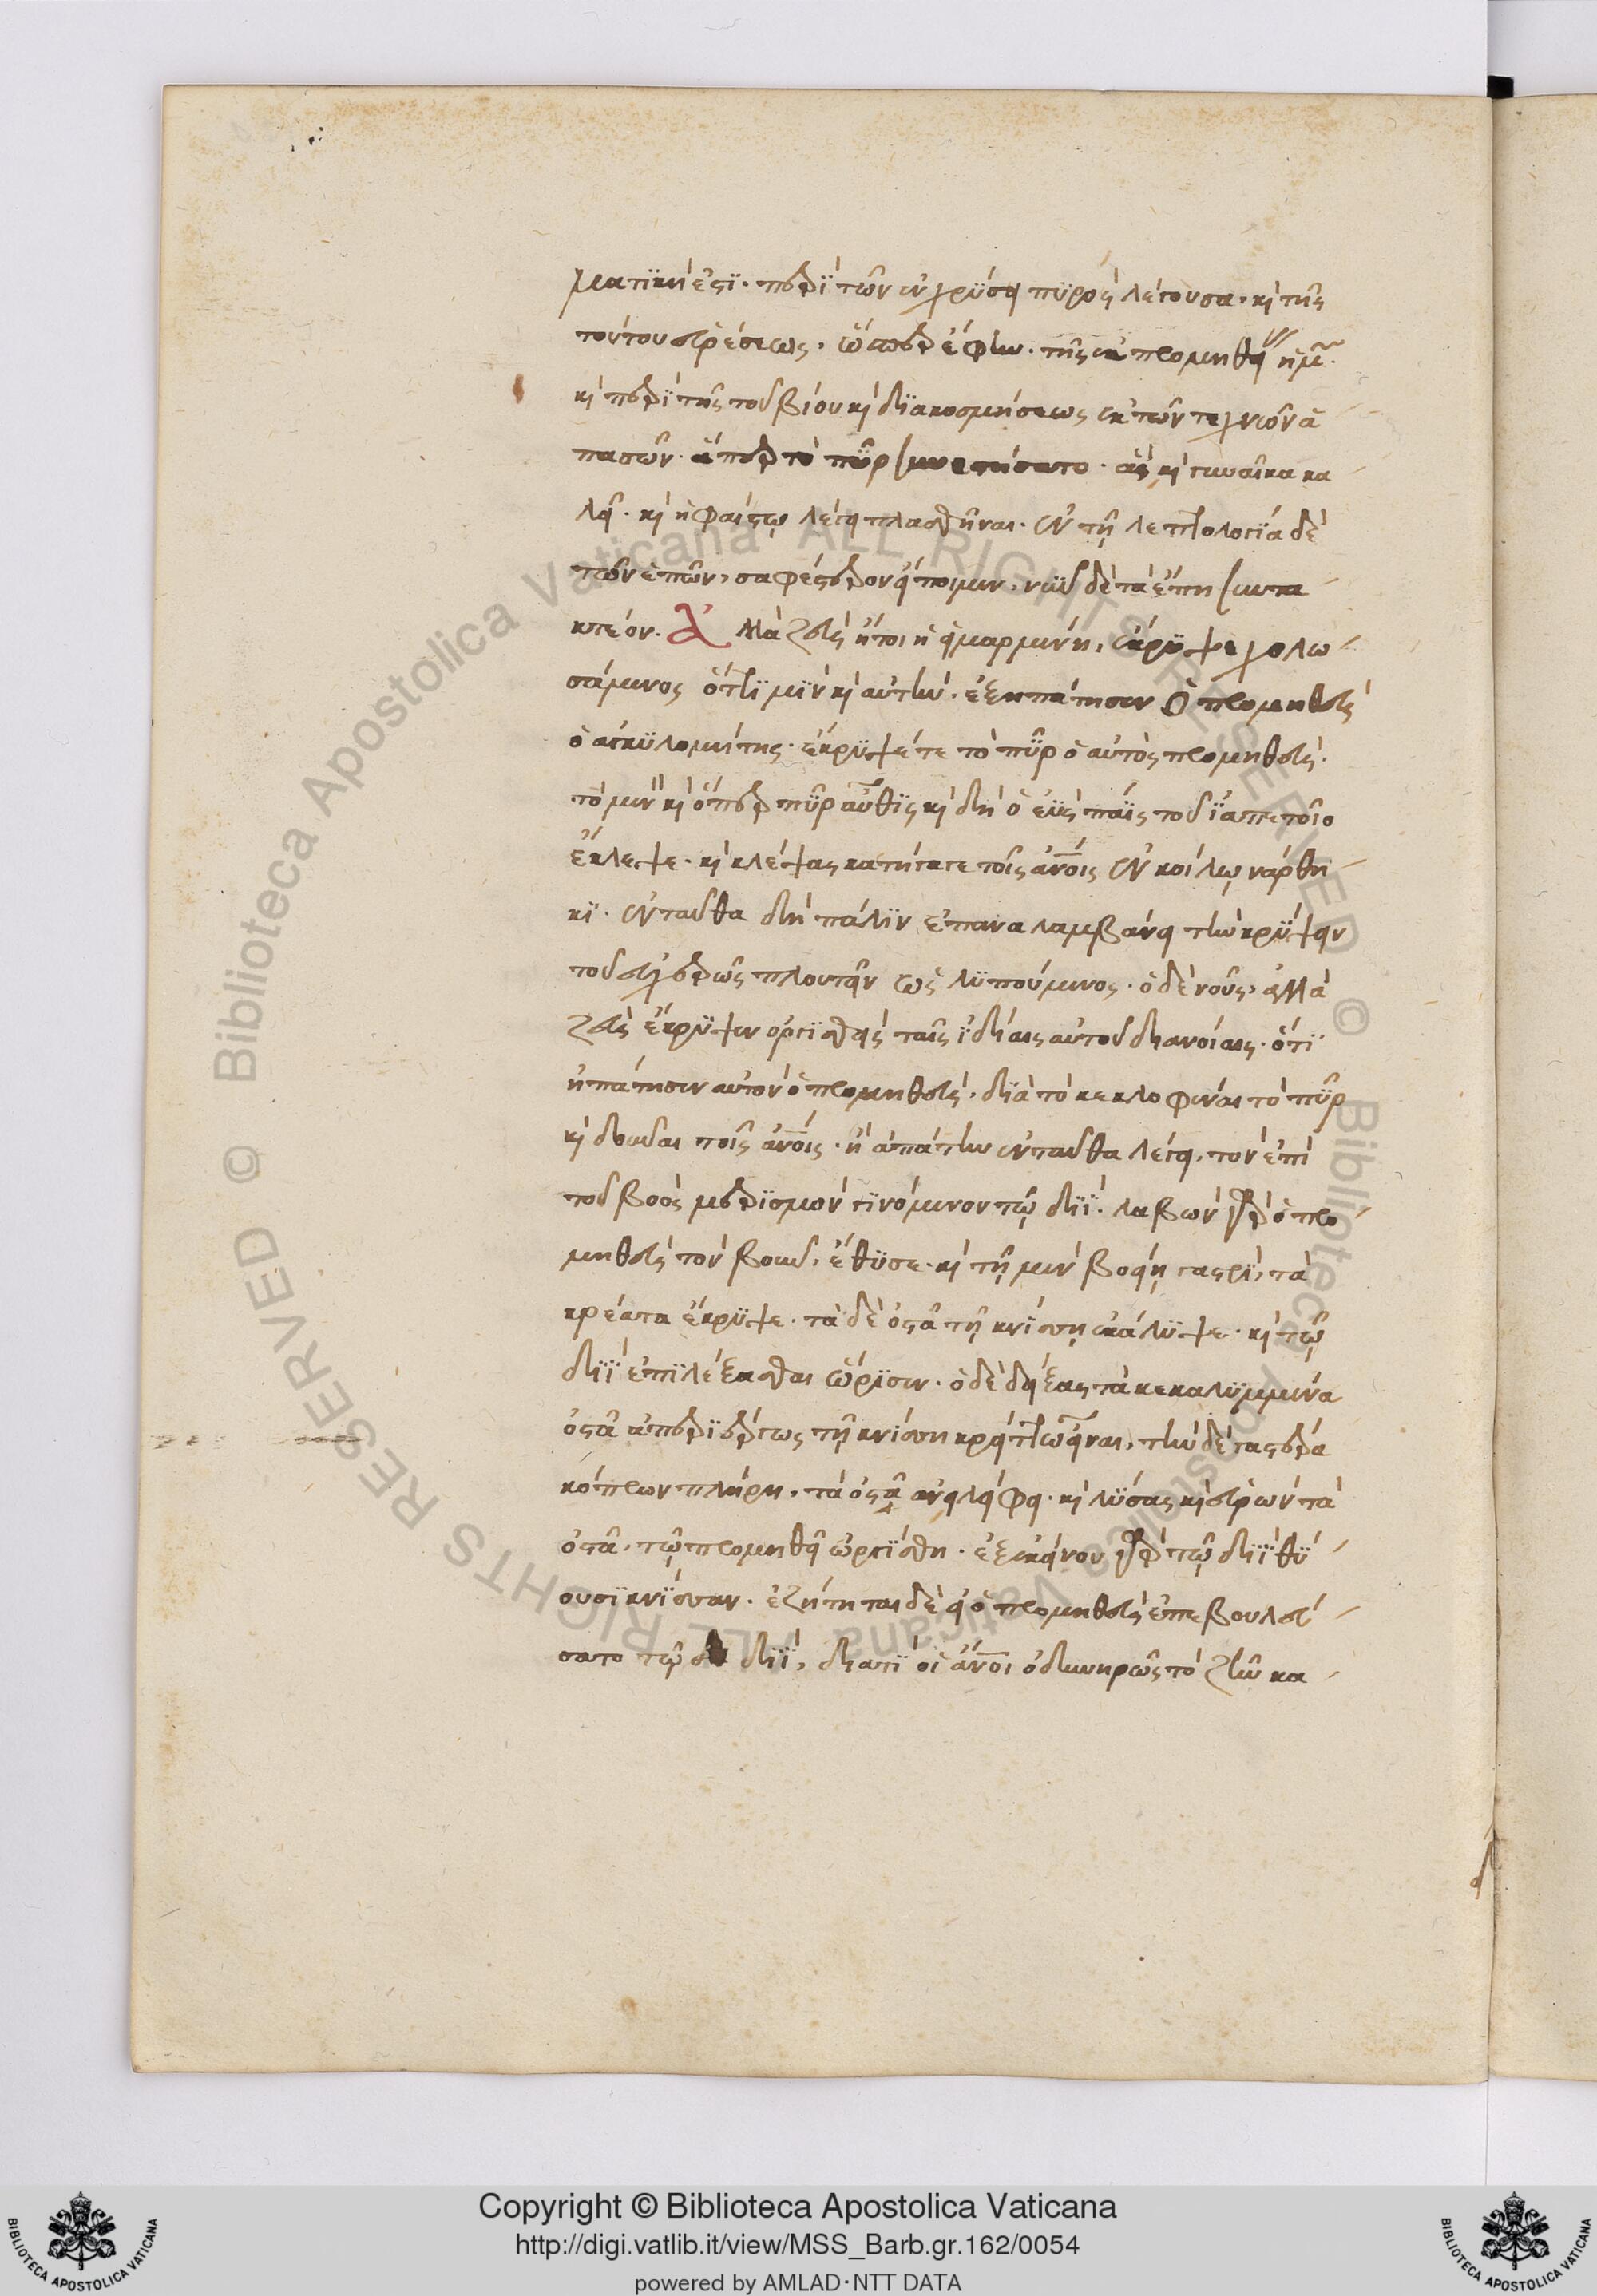 ματϊκή ἐςϊ. περὶ τῶν ἐν χρϋσει πϋρὸς λέγουσα. κὶ τῆς
τούτου εὑρέσεως. ὥσπερ ἔφην. τῆς ἐκ προμηθεί
κὶ περὶ τῆς τοῦ βίου κὶ δϊακοσμήσεως ἐκ τῶν τεχνῶν ἁ
πασῶν. ἅπερ τὸ πῦρ συνεστήσατο. ἃς κὶ γυναῖκα κα
λεῖ. κὶ ἡφαίςῳ λέγει πλασθῆναι. ἐν τῇ λεπτολογίᾳ δὲ
τῶν ἐπῶν, σαφέςερον εἴποιμεν. νῦν δὲ τὰ ἔπη συντα
κτέον. ἀλλὰ ζεὺς ἤτοι ἡ εἱμαρμένη, ἔκρϋψε χολω
σάμενος ὅτϊ μϊν κὶ αὐτὴν. ἐξηπάτησεν ὁ προμηθεὺς
ὁ ἀγκϋλομήτης. ἔκρϋψέ τε τὸ πῦρ ὁ αὐτὸς προμηθεὺς.
τὸ μὲν κὶ ὅπερ πῦρ αὖθϊς κὶ δὴ ὁ ἐϋς πάϊς τοῦ ἰαπετοῖο
ἔκλεψε. κὶ κλέψας κατήγαγε τοῖς ἀνοις ἐν κοίλῳ νάρθη
κϊ. ἐνταῦθα δὴ πάλϊν ἐπαναλαμβάνει τὴν κρϋψιν
τοῦ εὐχερῶς πλουτεῖν ὡς λϋπούμενος. ὁ δὲ νοῦς, ἀλλὰ
ζεὺς ἔκρϋψεν ὀργϊσθεὶς ταῖς ἰδίαις αὐτοῦ διανοίαις. ὅτϊ
ἠπάτησεν αὐτὸν ὁ προμηθεὺς. δϊὰ τὸ κεκλοφέναι τὸ πῦρ
κὶ δοῦναι τοῖς ἀνοις. ἢ ἀπάτην ἐνταῦθα λέγει, τὸν ἐπὶ
τοῦ βοὸς μερϊσμὸν γϊνόμενον τῷ δϊΐ. λαβὼν γὰρ ὁ προ
μηθεὺς τὸν βοῦν, ἔθϋσε. κὶ τῇ μὲν βοείῃ γαςρὶ, τὰ
κρέατα ἔκρϋψε. τὰ δὲ ὀςᾶ τῇ κνίσσῃ ἐκάλϋψε. κὶ τῷ
δϊΐ ἐπϊλέξασθαι ὥρισεν. ὁ δὲ δείξας τὰ κεκαλϋμμένα
ὀςᾶ ἀπεριέργως τῇ κνίσσῃ κρείττω εἶναι, τὴν δὲ γαςέρα
κόπρων πλήρη, τὰ ὀςᾶ ἀνειλήφει. κὶ λϋσας κὶ εὑρὼν τὰ
ὀςᾶ, τῷ προμηθεῖ ὠργίσθη. ἐξ ἐκείνου γὰρ τῷ δϊΐ θϋ
ουσϊ κνίσσαν. ἐζήτηται δὲ εἰ ὁ προμηθεὺς ἐπεβουλεύ
σατο τῷ δϊΐ, διατί οἱ ἄνοι ὀδυνηρῶς τὸ ζῆν κα